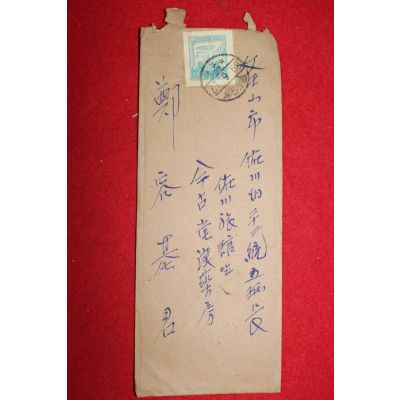 釜山市 佐川洞 三十二統 五班長
佐川旅館 ㅅ
今古堂漢藥房
鄭宗基君